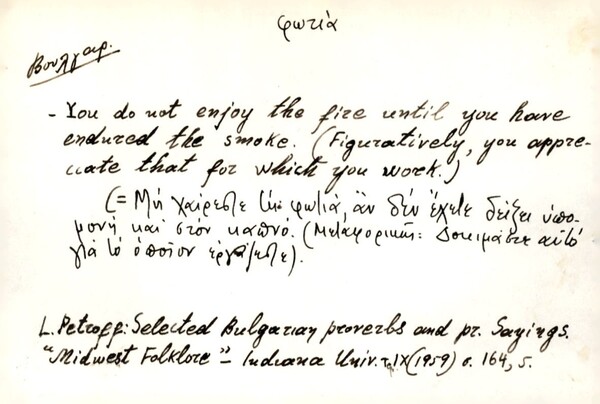 φωτιὰ
Βουλγαρ.
- You do not enjoy the fire until you have
endured the smoke. (Figuratively, you appre-
ciate that for which you work.)
(= Μὴ χαίρεστε τὴ φωτιά, ἂν δὲν ἔχετε δείξει ὑπο-
μονὴ καὶ στὸν καπνό. (Μεταφορικῶς: Δοκιμάστε αὐτὸ
γιὰ τὸ ὁποῖον ἐργάζεστε).
L. Petroff: Selected Bulgarian proverbs and pr. Sayings.
"Midwest Folklore" – Indiana Univ. τ. IX (1959) σ. 164, 5.